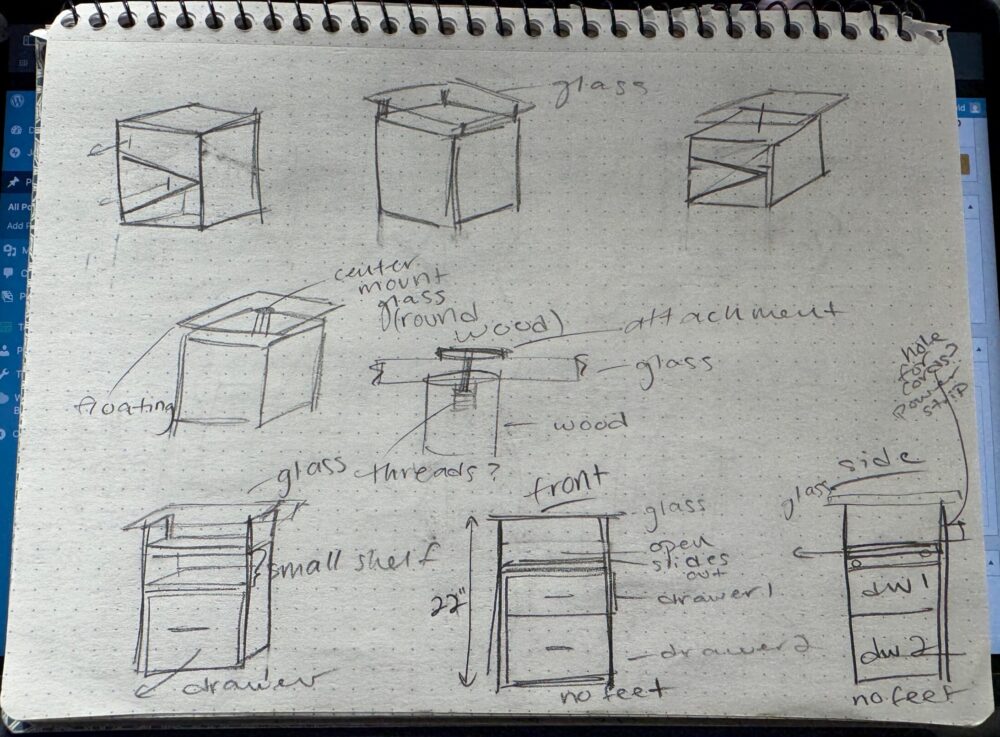 glass
center
mount
glass
(round
wood)
attachment
glass
floating
wood
threads?
hole
for
cords?
power
strip
glass
small shelf
drawer
front
glass
open
slides
out
22"
drawer 1
drawer 2
no feet
side
glass
dw 1
dw 2
no feet
All Po
Add P